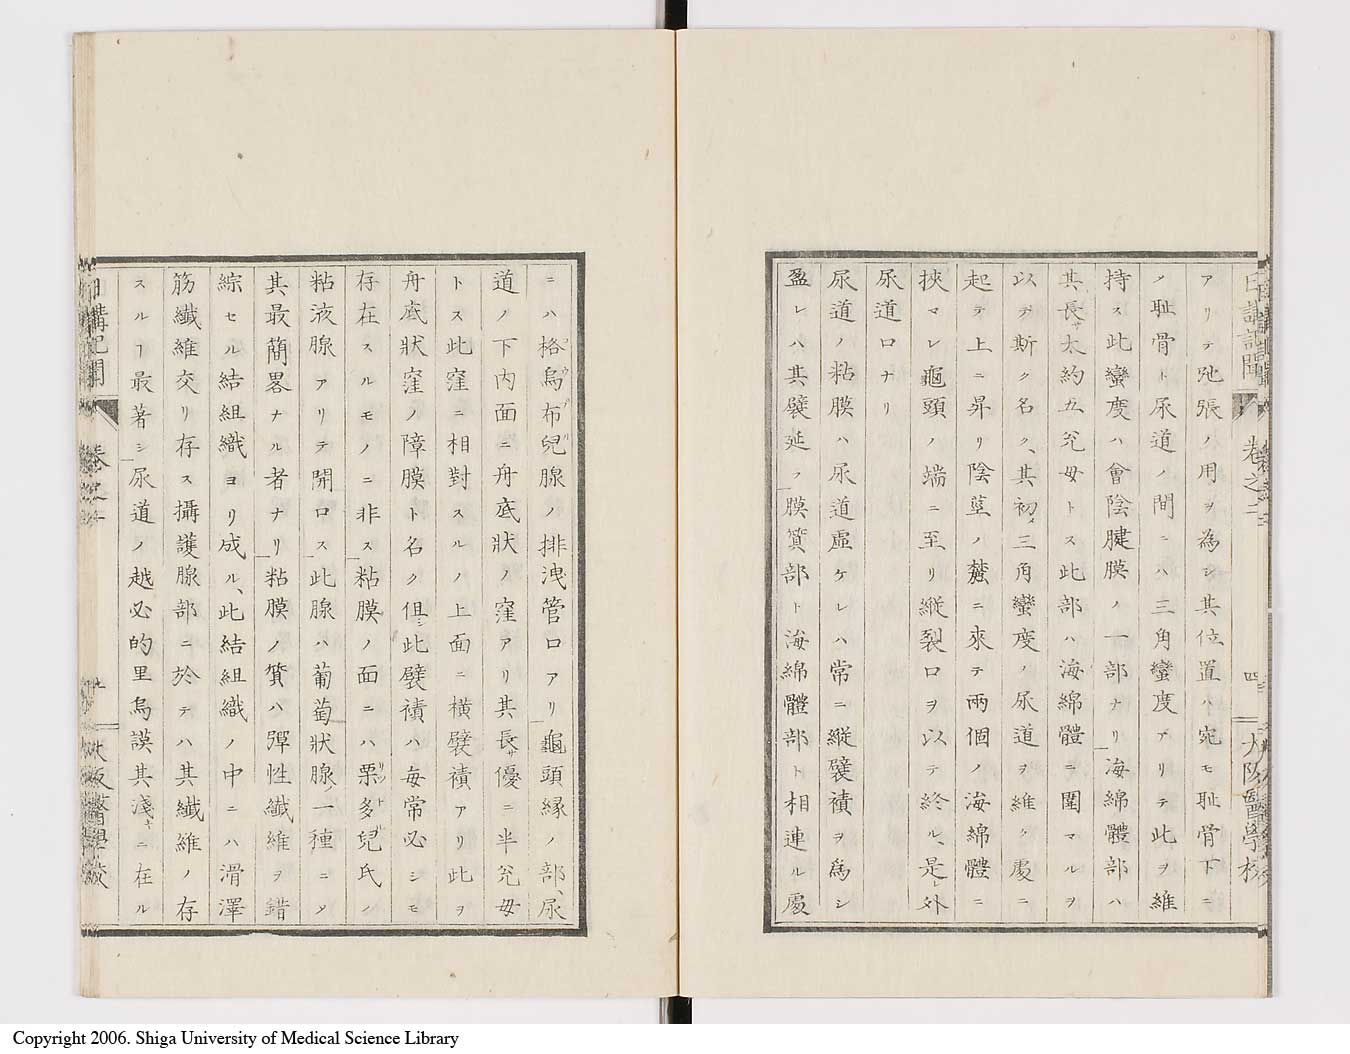 日講記聞 卷之二 四 大阪醫學校
アリテ弛張ノ用ヲ為シ其位置ハ宛モ耻骨下ニ
ノ耻骨ト尿道ノ間ニハ三角蠻度アリテ此ヲ維
持ス此蠻度ハ會陰腱膜ノ一部ナリ海綿體部ハ
其長サ大約五兊毋トス此部ハ海綿體ニ圍マルヲ
以テ斯ク名ク、其初メ三角蠻度ノ尿道ヲ維ク處ニ
起テ上ニ昇リ陰莖ノ麓ニ來テ兩個ノ海綿體ニ
挾マレ龜頭ノ端ニ至リ縦裂口ヲ以テ終ル、是レ外
尿道口ナリ
尿道ノ粘膜ハ尿道虛ケレハ常ニ縱襞襀ヲ為シ
盈レハ其襞延フ膜質部ト海綿體部ト相連ル處
ニハ格烏布兒腺ノ排洩管口アリ龜頭緣ノ部、尿
道ノ下内面ニ舟底狀ノ窪アリ其長サ優ニ半兊毋
トス此窪ニ相對スルノ上面ニ橫襞襀アリ此ヲ
舟底狀窪ノ障膜ト名ク但シ此襞襀ハ每常必シモ
存在スルモノニ非ス粘膜ノ面ニハ栗多兒氏ノ
粘液腺アリテ開口ス此腺ハ葡萄狀腺ノ一種ニメ
其最簡畧ナル者ナリ粘膜ノ質ハ彈性纖維ヲ錯
綜セル結組織ヨリ成ル、此結組織ノ中ニハ滑澤
筋纖維交リ存ス攝護腺部ニ於テハ其纖維ノ存
スルヿ最著シ尿道ノ越必的里烏謨其淺キニ在ル
日講記聞 卷之二 大阪醫學校
Copyright 2006. Shiga University of Medical Science Library